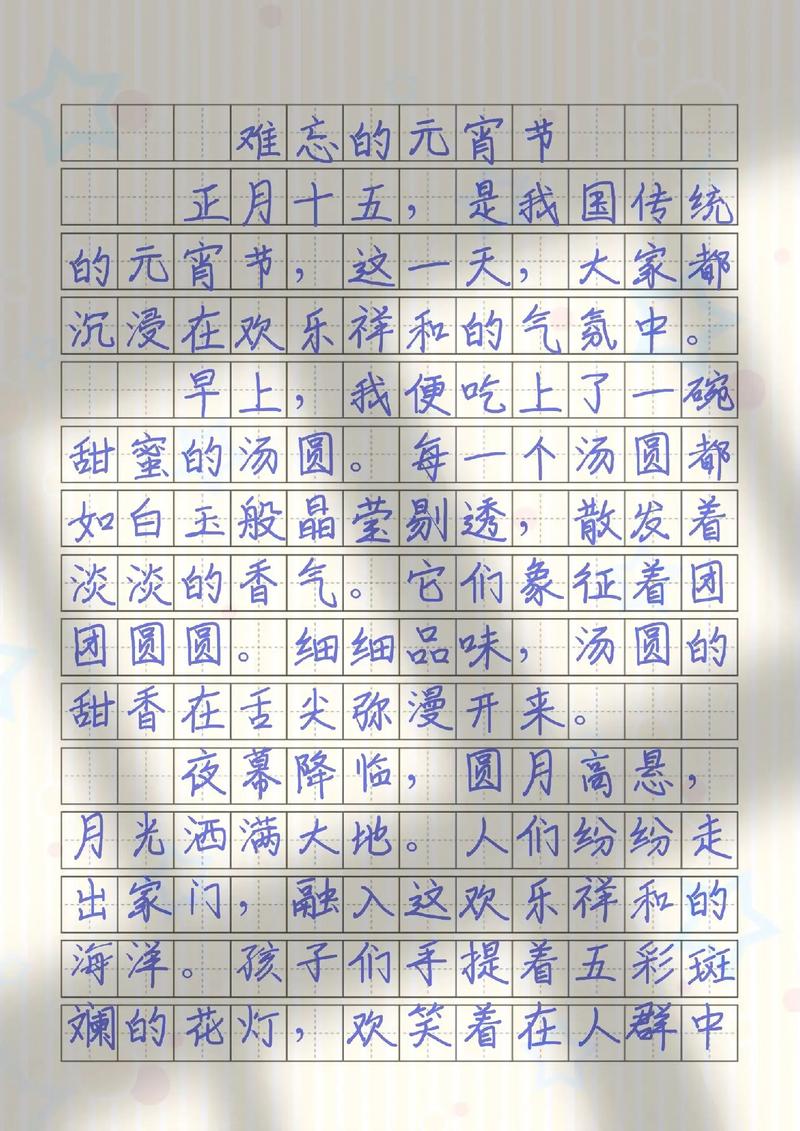 难忘的元宵节
正月十五，是我国传统
的元宵节，这一天，大家都
沉浸在欢乐祥和的气氛中。
早上，我便吃上了一碗
甜蜜的汤圆。每一个汤圆都
如白玉般晶莹剔透，散发着
淡淡的香气。它们象征着团
团圆圆。细细品味，汤圆的
甜香在舌尖弥漫开来。
夜幕降临，圆月高悬，
月光洒满大地。人们纷纷走
出家门，融入这欢乐祥和的
海洋。孩子们手提着五彩斑
斓的花灯，欢笑着在人群中